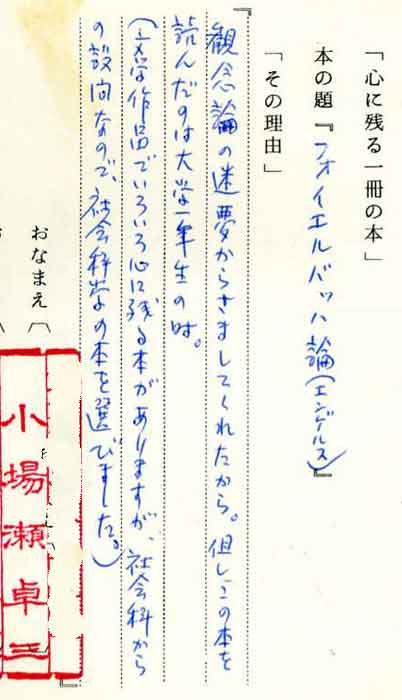 「心に残る一冊の本」
本の題『フォイエルバッハ論(エンゲルス)』
「その理由」
『観念論の迷夢からさましてくれたから。但しこの本を
読んだのは大学一年生の時。
(文学作品でいろいろ心に残る本がありますが、社会科から
の設問なので、社会科学の本を選びました。)
』
おなまえ〔
小場瀬卓三